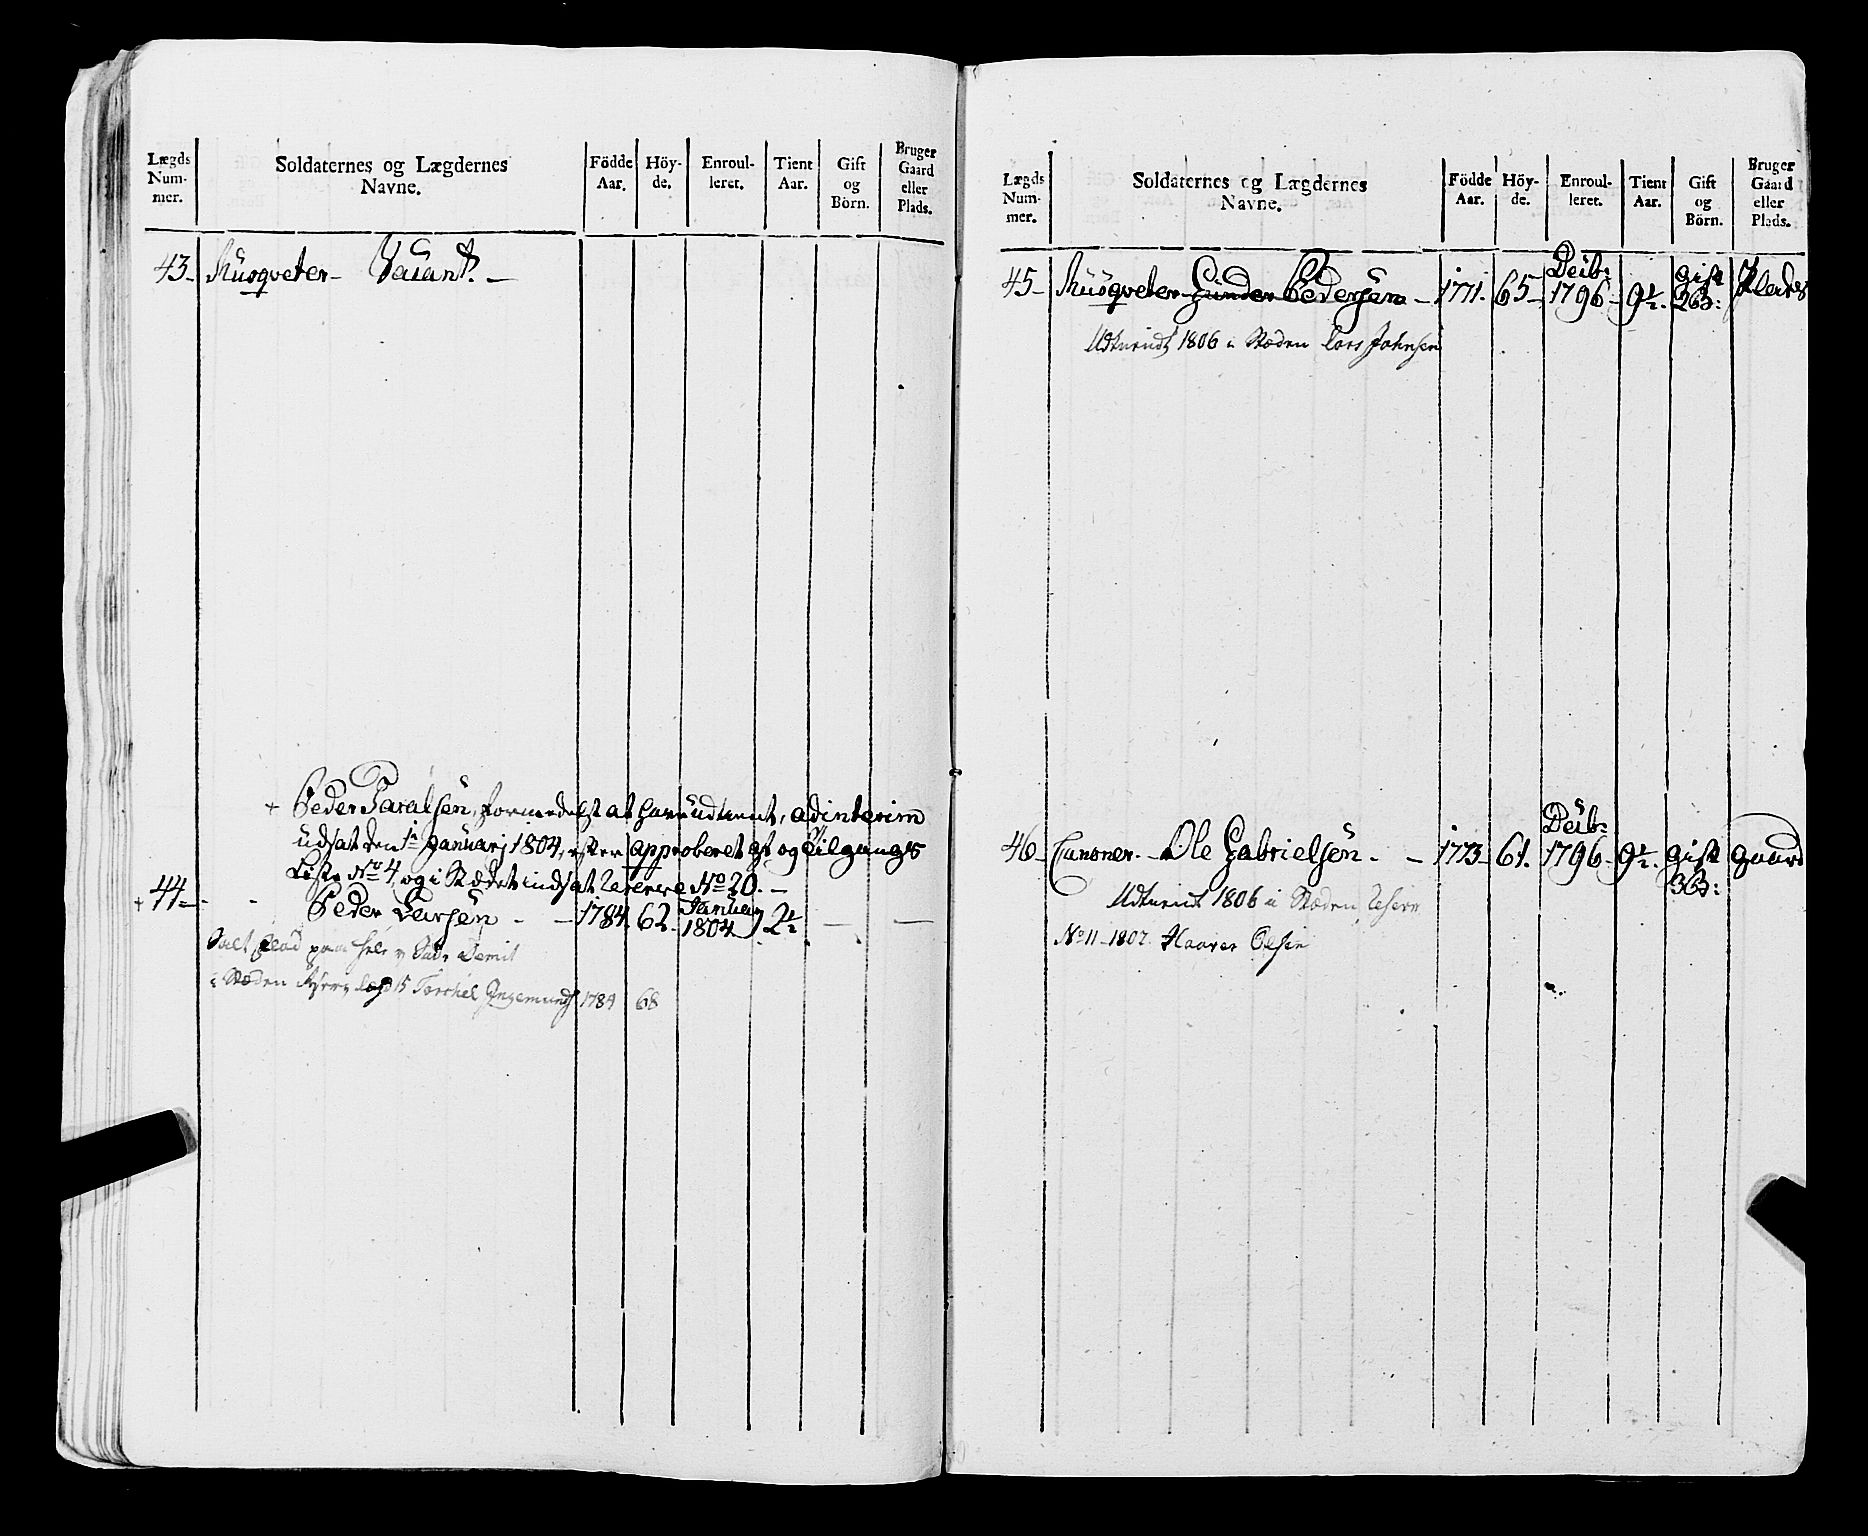 Lægds Num- mer.
Soldaternes og Lægdernes Navne.
Födde Aar.
Höy- de.
Enroul- leret.
Tient Aar.
Gift og Börn.
Bruger Gaard eller Plads.
43 - Musqveter - Vacant. -
+ Peder Taralsen, formedelst at have udtient, ad interim
udsat den 1te Januarj 1804, efter approberet Af og Tilgangs
Liste No 4, og i Stædet indsat Reserve No 20. -
+ 44 - - Peder Larsen - - 1784. 62. Januarj 1804 2½ - -
i Stæden lægd 15 Torchel Ingemunds 1784 68
Lægds Num- mer.
Soldaternes og Lægdernes Navne.
Födde Aar.
Höy- de.
Enroul- leret.
Tient Aar.
Gift og Börn.
Bruger Gaard eller Plads.
45 - Musqveter Gunder Pedersen - 1771. 65 - Decb: 1796 - 9½. gift 2 b: Plads
Udtient 1806 i Stæden Lars Johnsen
46 - Cunoner. - Ole Gabrielsen. - - 1773 - 61. Decb: 1796 - 9½. gift 3 b: gaard
Udtient 1806 i Stæden Reserv
No 11 - 1807. Haaver Olsen